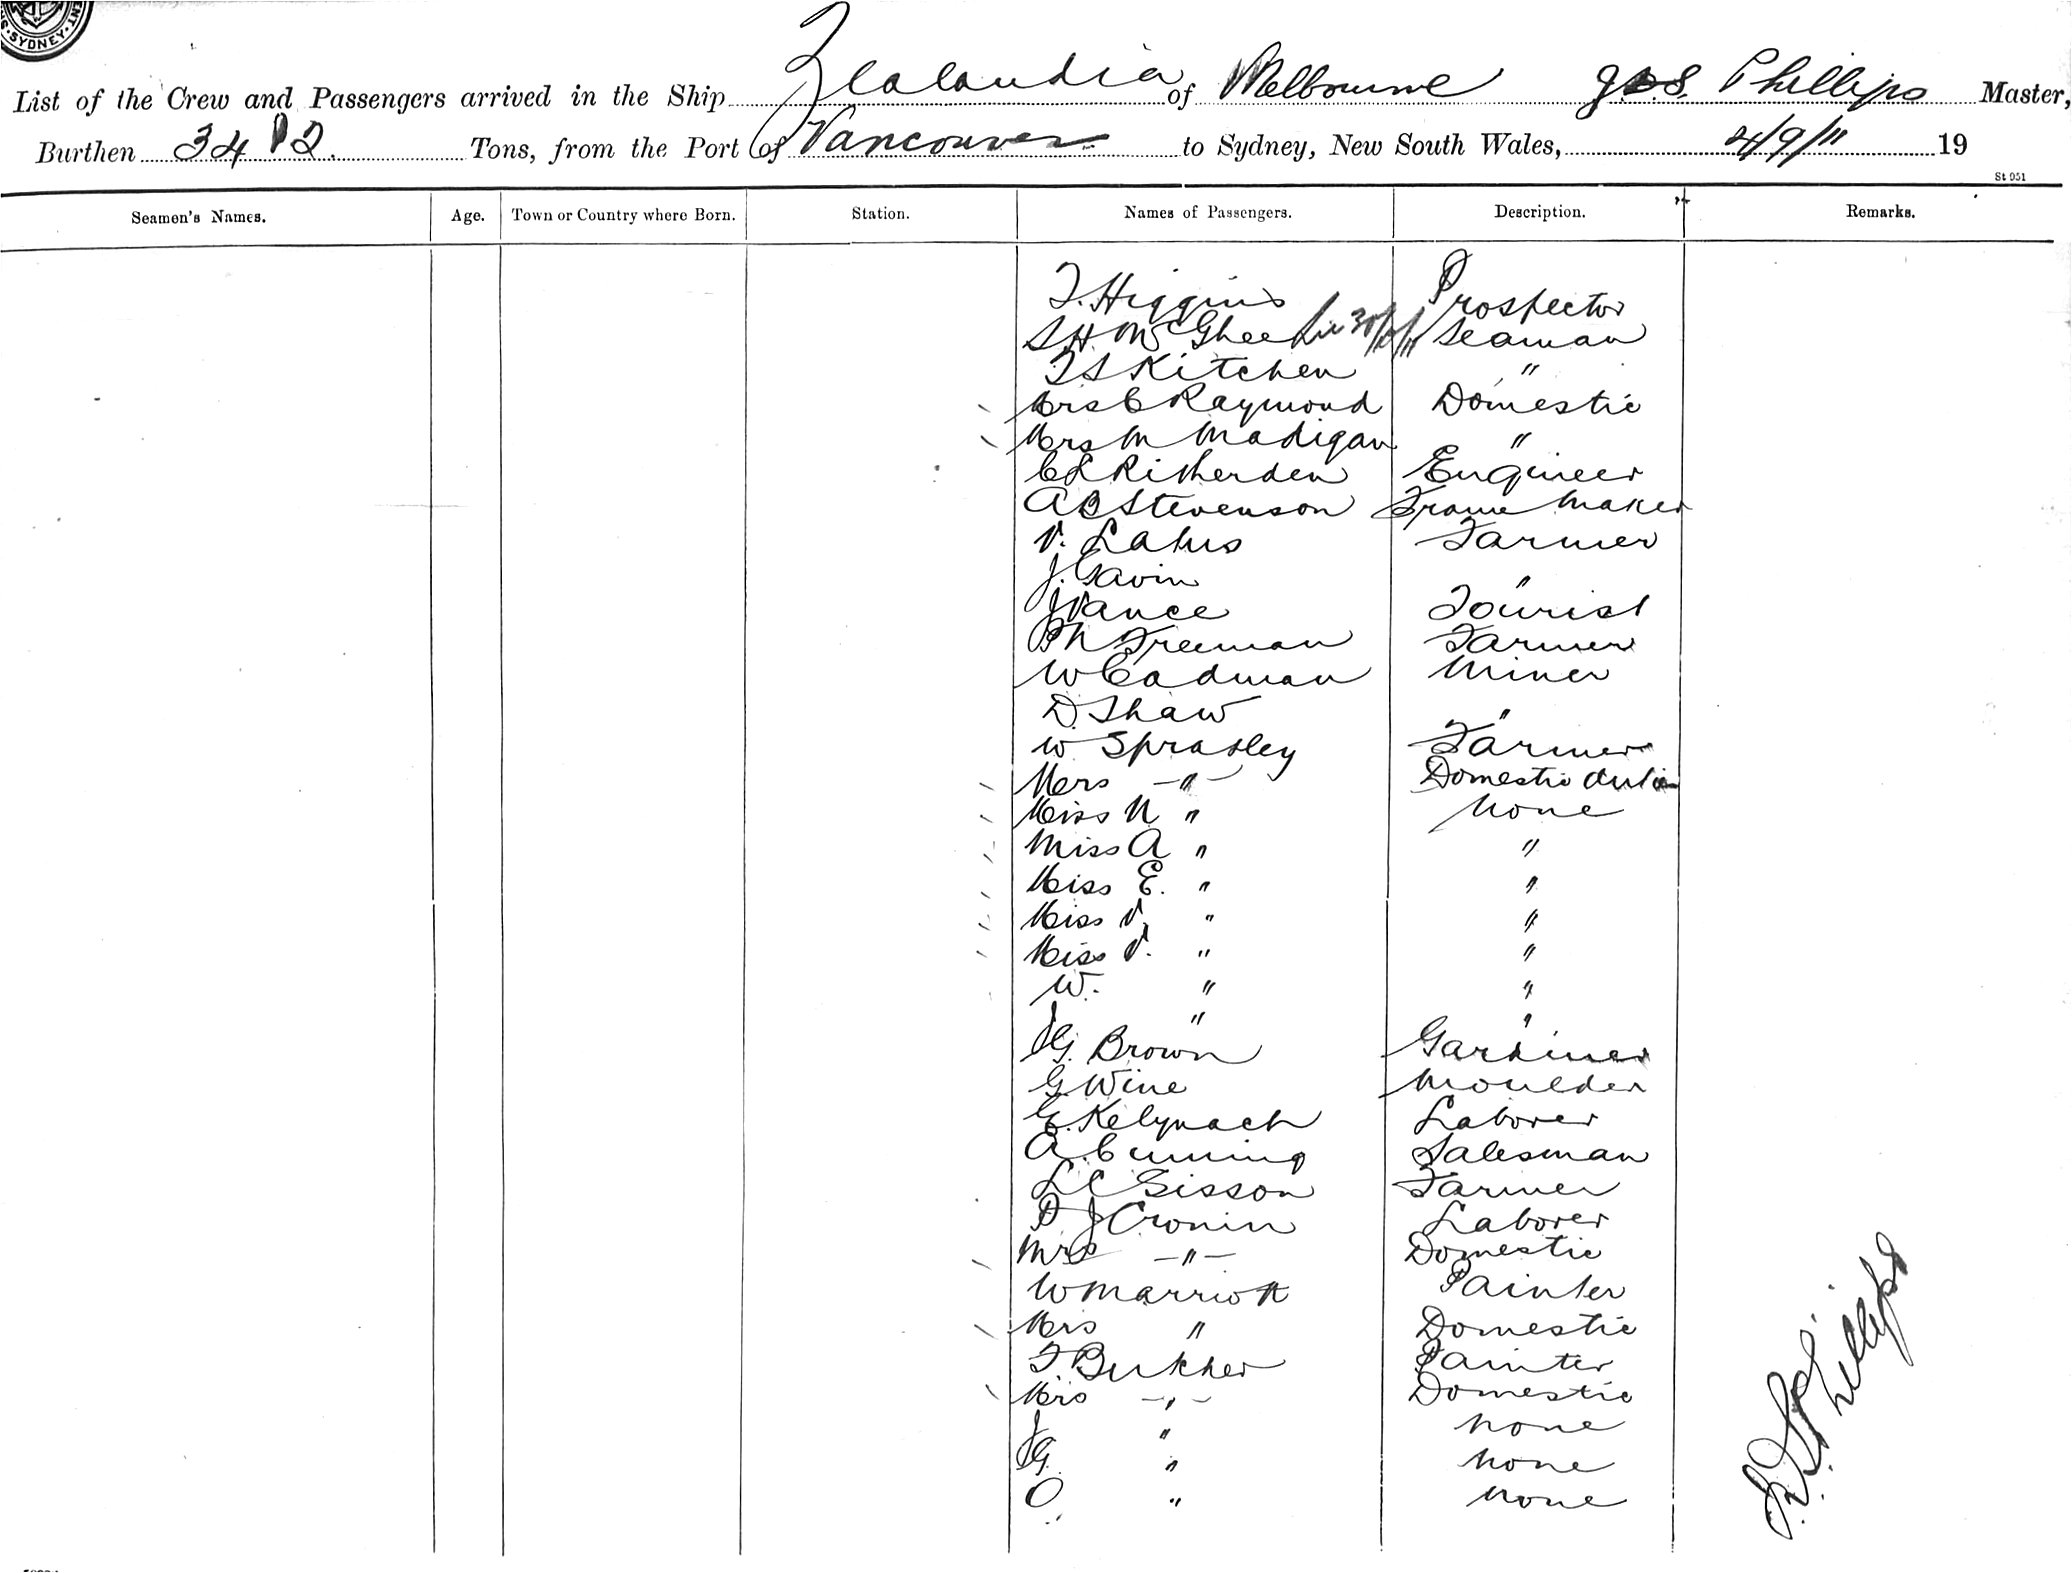 SYDNEY
List of the Crew and Passengers arrived in the Ship Zealandia of Melbourne Phillips Master,
Burthen 34 2 Tons, from the Port of Vancouver to Sydney, New South Wales, 4/9/11 19
St 951
Seamen's Names. Age. Town or Country where Born. Station. Names of Passengers. Description. Remarks.
T. Higgins Prospector
S H McGhee Seaman
T S Kitchen "
Mrs C Raymond Domestic
Mrs M Madigan "
C L Ritherden Engineer
A B Stevenson Frame Maker
V. Farmer
J. Gavin "
J Vance Tourist
Freeman Farmer
W Cadman Miner
D. Shaw "
W Spratley Farmer
Mrs -"- Domestic duties
Miss N " None
Miss A "  "
Miss E. "  "
Miss V. "  "
Miss V. "  "
W. "  "
J "  "
J G. Brown Gardiner
G. Wine Moulder
G. Kelynack Laborer
A. Cuming Salesman
L C Sisson Farmer
D J Cronin Laborer
Mrs -"- Domestic
W Marriott Painter
Mrs " Domestic
T Butcher Painter
Mrs -"- Domestic
J " none
G. " none
O " none
J. D. S. Phillips